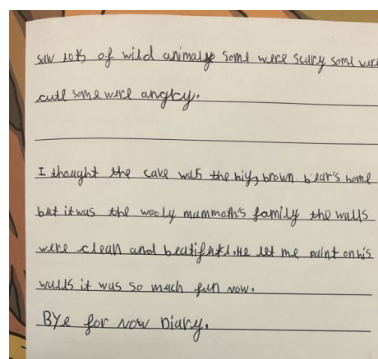 saw lots of wild animals some were scary some were
cute some were angry.
I thought the cave was the big, brown bear's home
but it was the wooly mammoth's family the walls
were clean and beatiful. He let me paint on his
walls it was so much fun now.
BYe for now Diary.